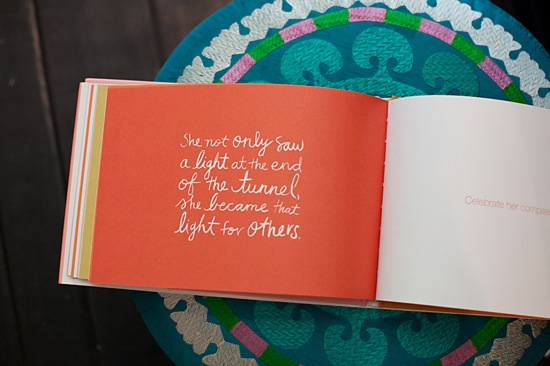 She not only saw
a light at the end
of the tunnel,
she became that
light for others.
Celebrate her